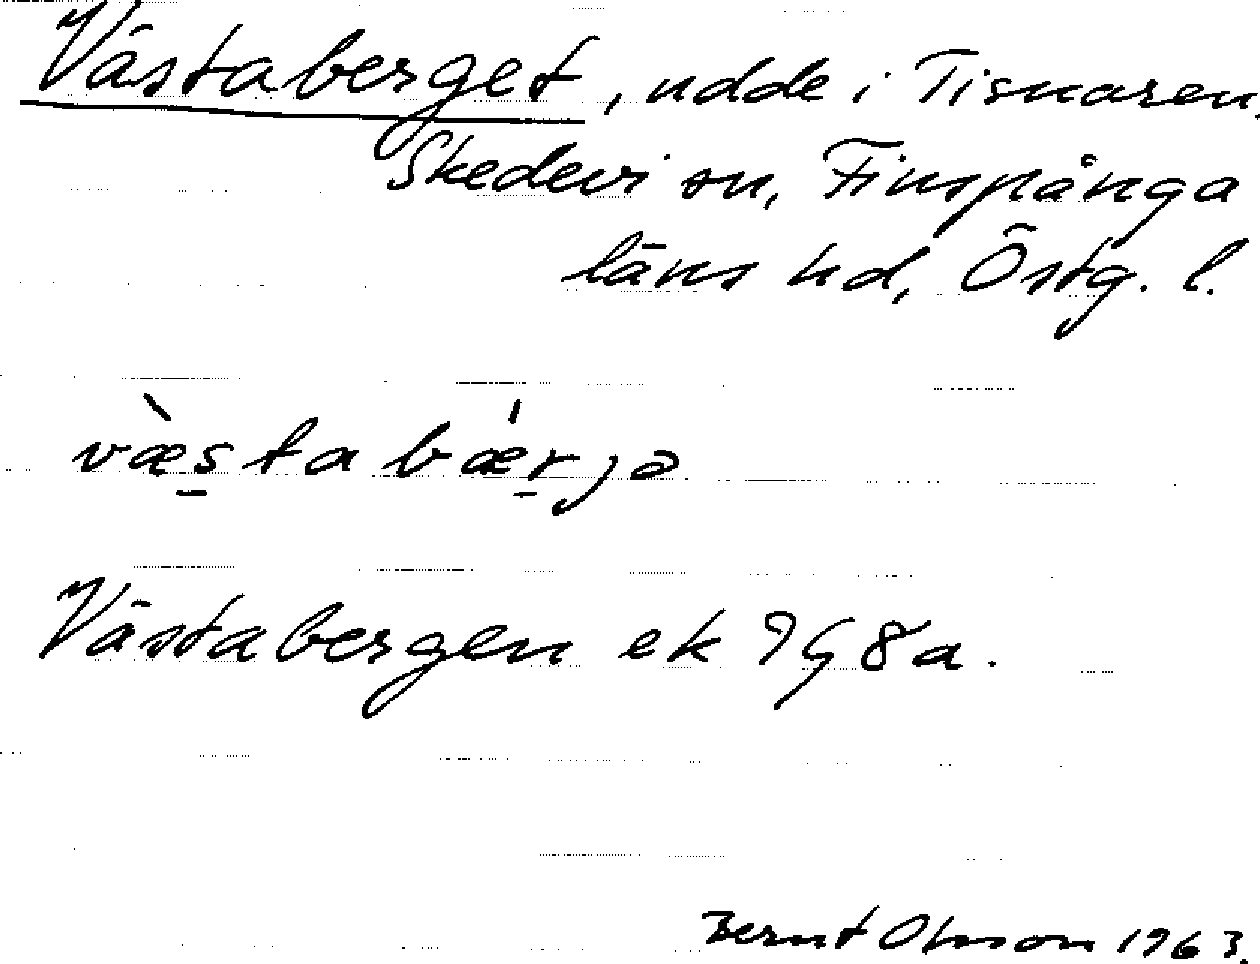 Västaberget, udde i Tisnaren,
Skedevi sn, Finspånga
läns hd, Östg. l.
væ̀s̠tabǽr̠jə
Västabergen ek 9G8a.
Bernt Olsson 1963.